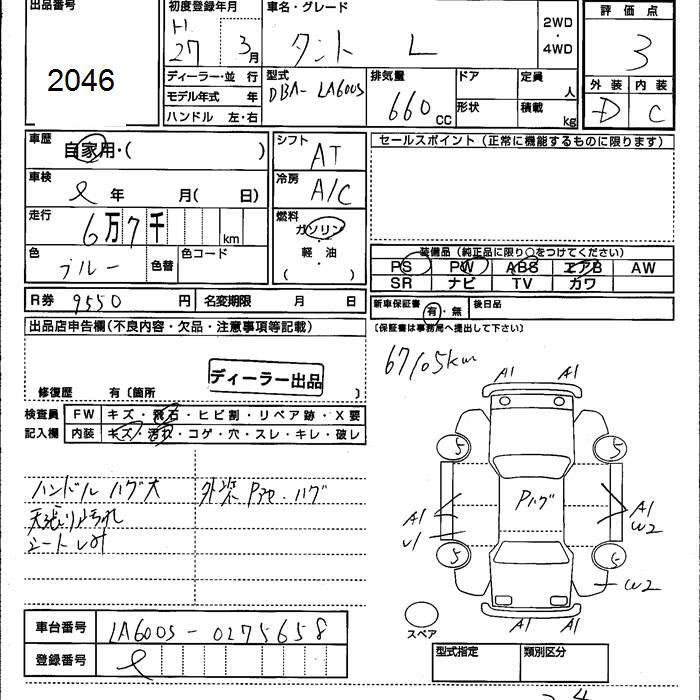 出品番号
2046
初度登録年月
H
27 3月
車名・グレード
タント L
2WD
・
4WD
評価点
3
外装 内装
D C
ディーラー・並行
モデル年式 年
ハンドル 左・右
型式
DBA-LA600S
排気量
660 CC
ドア
形状
定員 人
積載 kg
車歴
自家用・( )
車検
年 月( 日)
走行
6万7千 km
色
ブルー
色替
色コード
シフト
AT
冷房
A/C
燃料
ガソリン
・
軽・油
( )
セールスポイント(正常に機能するものに限ります)
装備品(純正品に限り○をつけてください)
PS PW ABS エアB AW
SR ナビ TV カワ
R券 9550 円 名変期限 月 日
新車保証書 有・無 後日品
(保証書は事務局へ提出して下さい)
出品店申告欄(不良内容・欠品・注意事項等記載)
ディーラー出品
修復歴 有〔箇所 〕
検査員 FW キズ・飛石・ヒビ割・リペア跡・X要
記入欄 内装 キズ・汚れ・コゲ・穴・スレ・キレ・破レ
67105km
A1 A1
5 5
Pハゲ
A1 A1
U1 W2
5 5
W2
A1 A1
スペア
ハンドル ハゲ大
天張り汚れ
シート
外装 ハゲ
車台番号 LA600S-0275658
登録番号
型式指定 類別区分